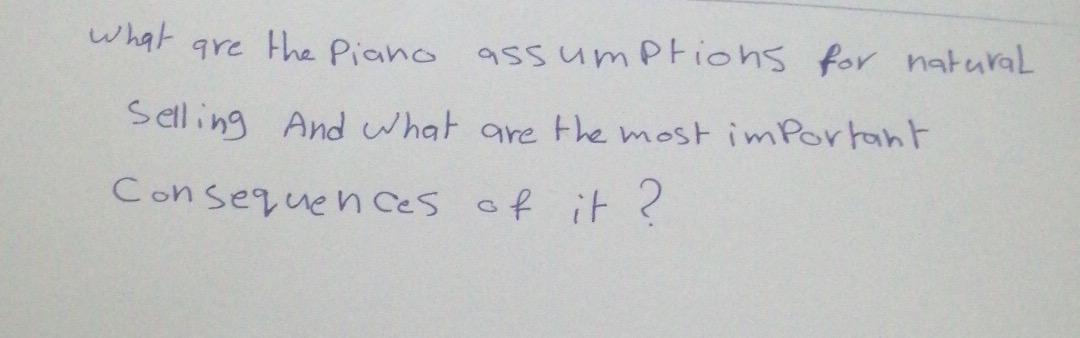 What are the Piano assumptions for natural
Selling And What are the most important
Consequences of it ?